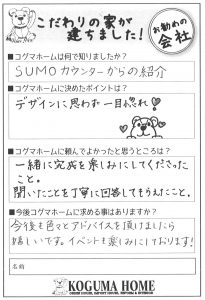 こだわりの家が
建ちました!
お勧めの
会社
■コグマホームは何で知りましたか?
SUMOカウンターからの紹介
■コグマホームに決めたポイントは?
デザインに思わず一目惚れ!
■コグマホームに頼んでよかったと思うところは?
一緒に完成を楽しみにしてくださった
こと。
聞いたことを丁寧に回答してもらえたこと。
■今後コグマホームに求める事はありますか?
今後も色々とアドバイスを頂けましたら
嬉しいです。イベントも楽しみにしております!
名前
KOGUMA HOME